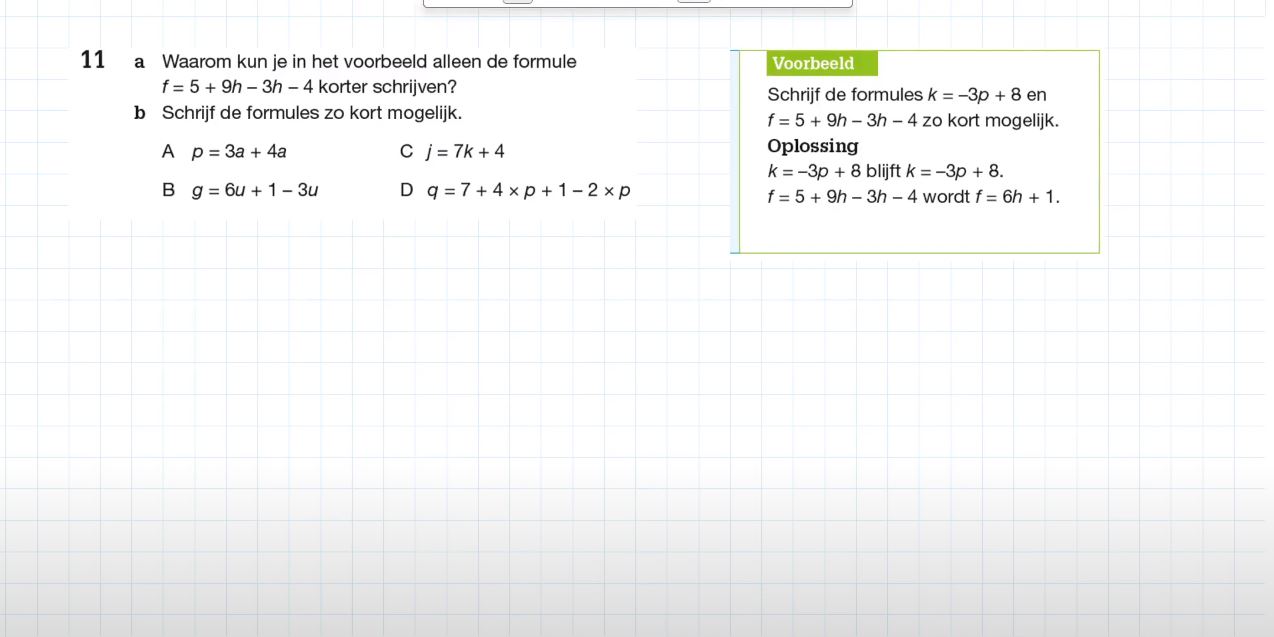 11 a Waarom kun je in het voorbeeld alleen de formule
f = 5 + 9h – 3h – 4 korter schrijven?
b Schrijf de formules zo kort mogelijk.
A p = 3a + 4a
C j = 7k + 4
B g = 6u + 1 – 3u
D q = 7 + 4 × p + 1 – 2 × p
Voorbeeld
Schrijf de formules k = –3p + 8 en
f = 5 + 9h – 3h – 4 zo kort mogelijk.
Oplossing
k = –3p + 8 blijft k = –3p + 8.
f = 5 + 9h – 3h – 4 wordt f = 6h + 1.